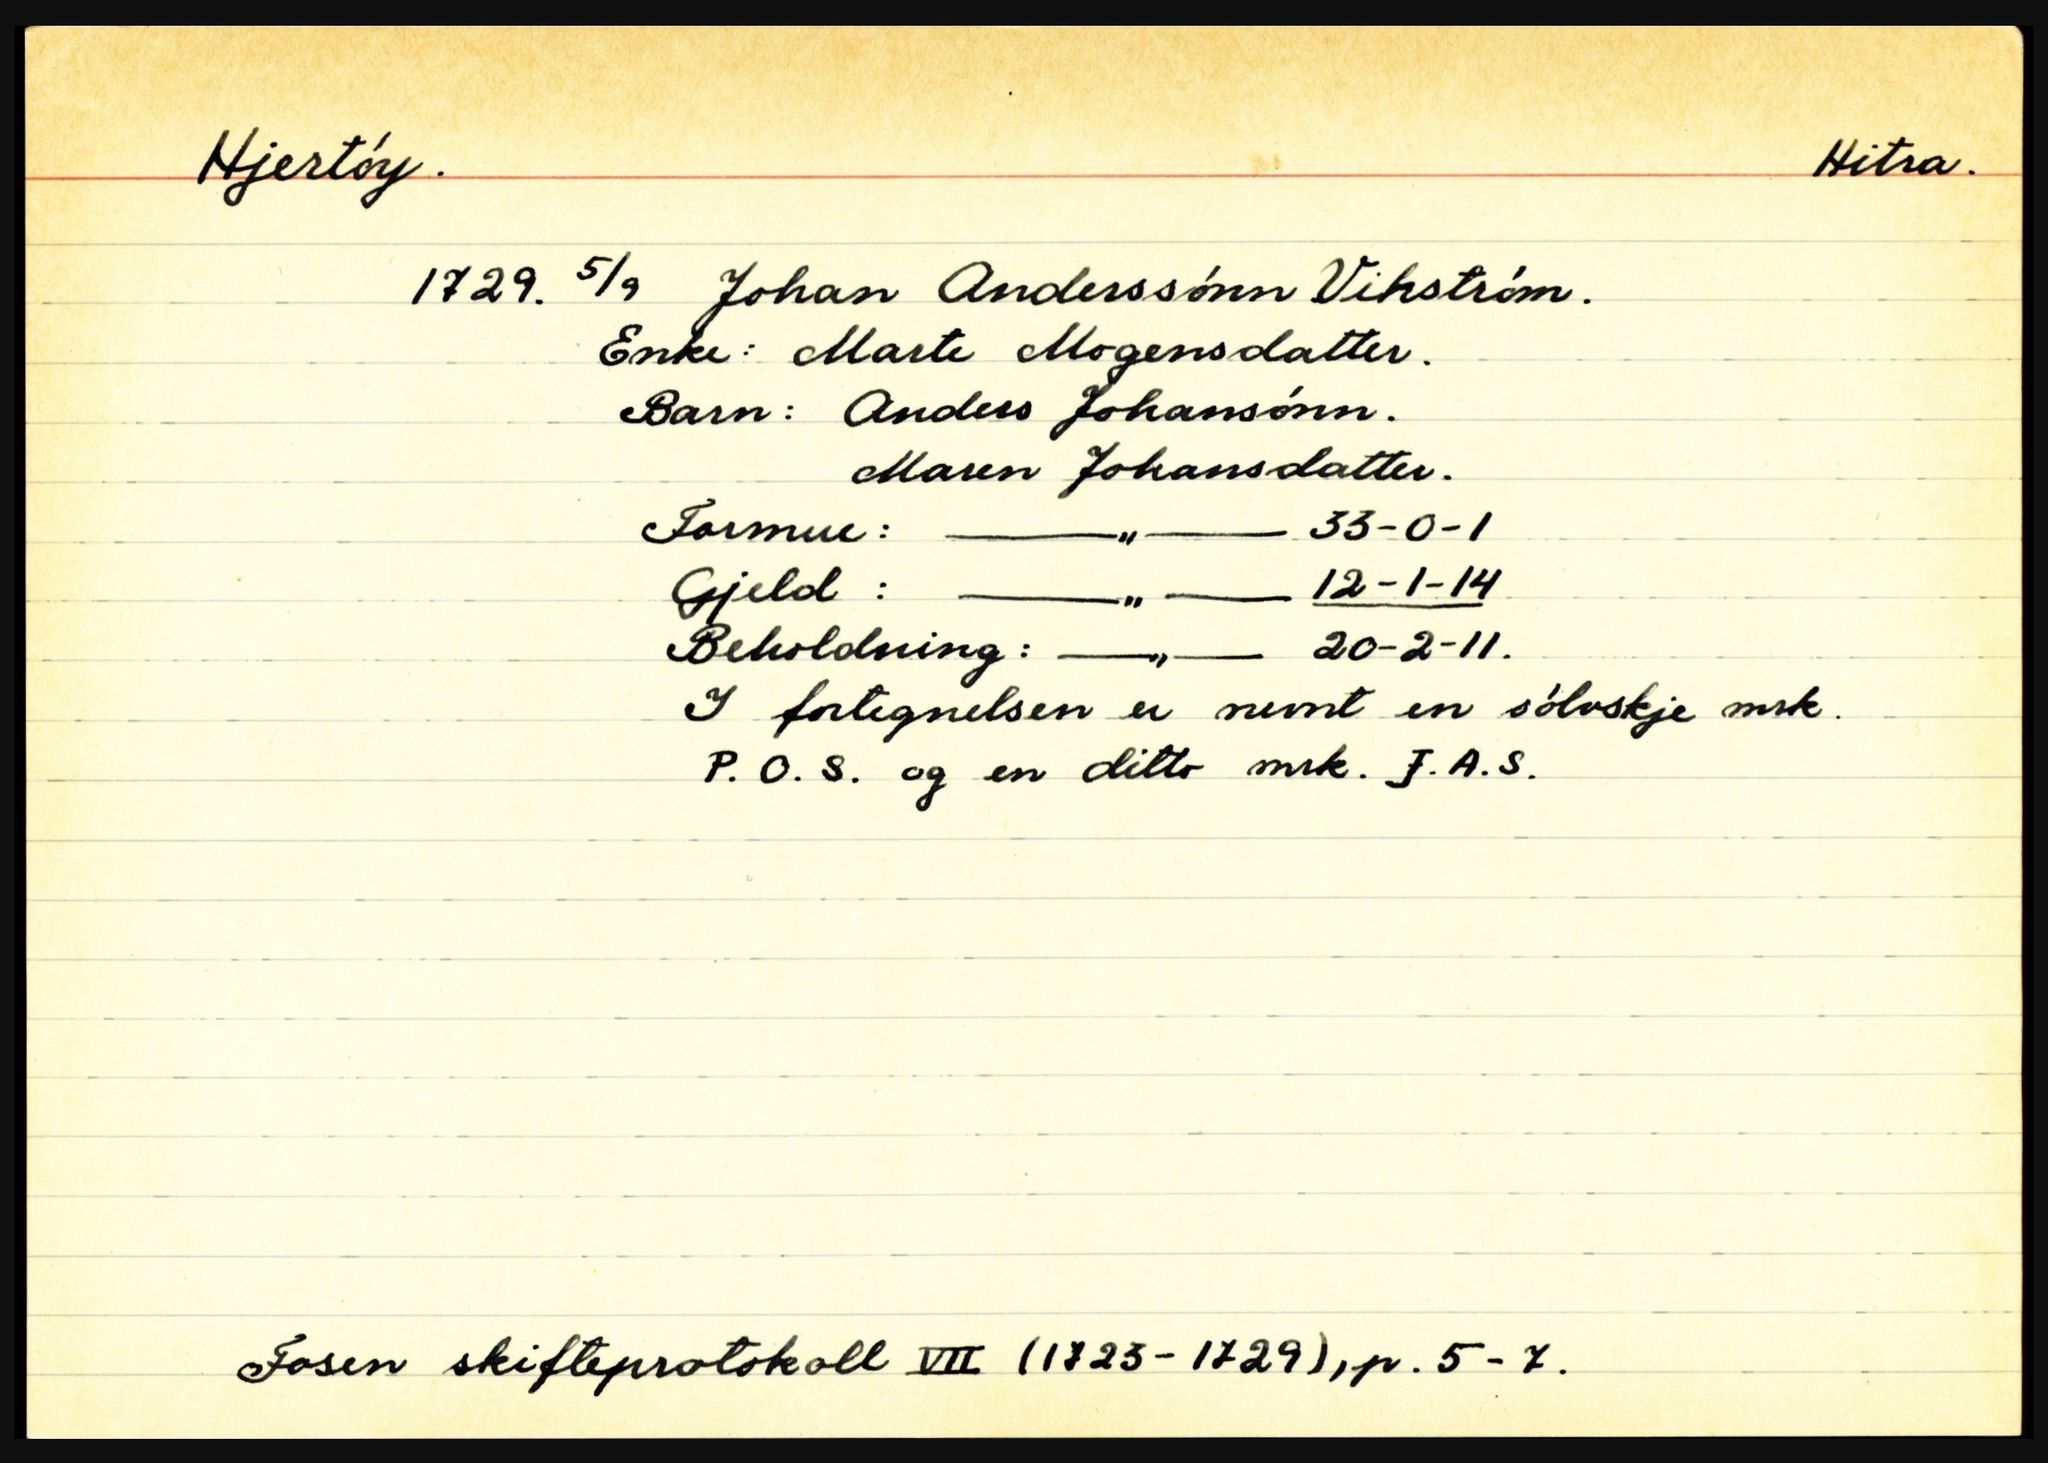 Hjertóy.
Hitra.
1729. 5/9 Johan Anderssónn Vihstróm.
Enke: Marte Mogensdatter.
Barn: Anders Johansónn.
Maren Johansdatter.
Formue: —„— 33-0-1
Gjeld : —„— 12-1-14
Beholdning: —„— 20-2-11.
I fortegnelsen er nevnt en sólvskje mrk.
P. O. S. og en ditto mrk. J. A. S.
Fosen skifteprotokoll VII (1723-1729), p. 5-7.